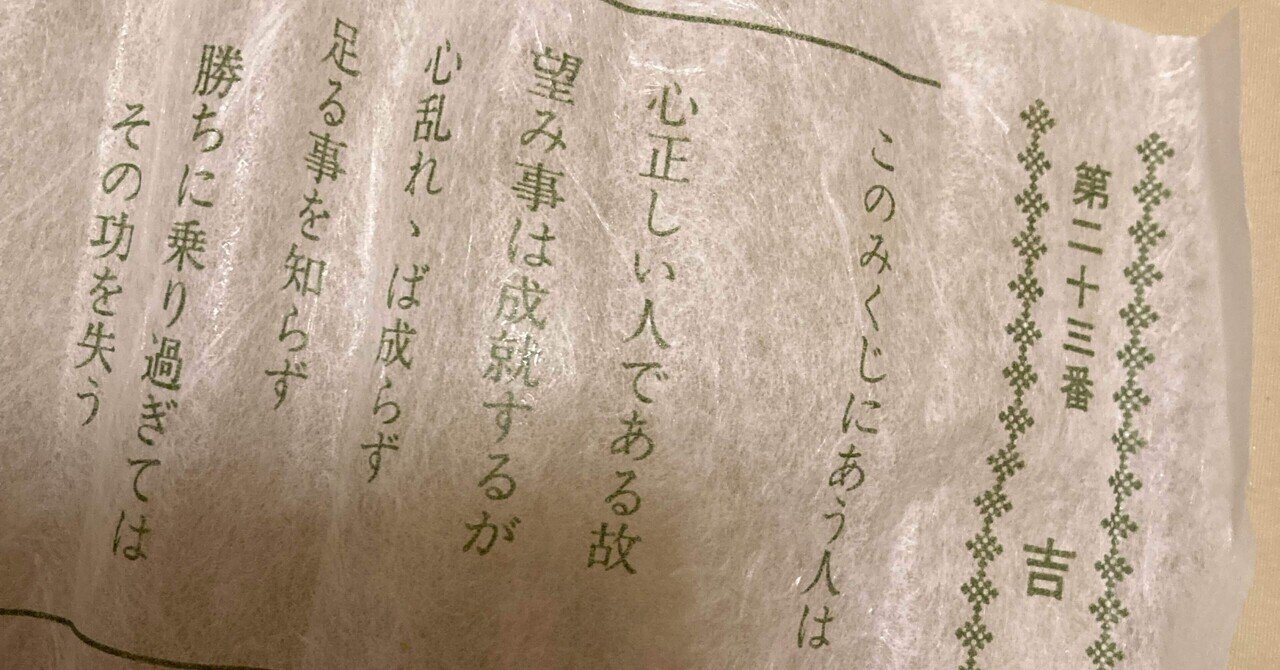 第二十三番 吉
このみくじにあう人は
心正しい人である故
望み事は成就するが
心乱れゝば成らず
足る事を知らず
勝ちに乗り過ぎては
その功を失う